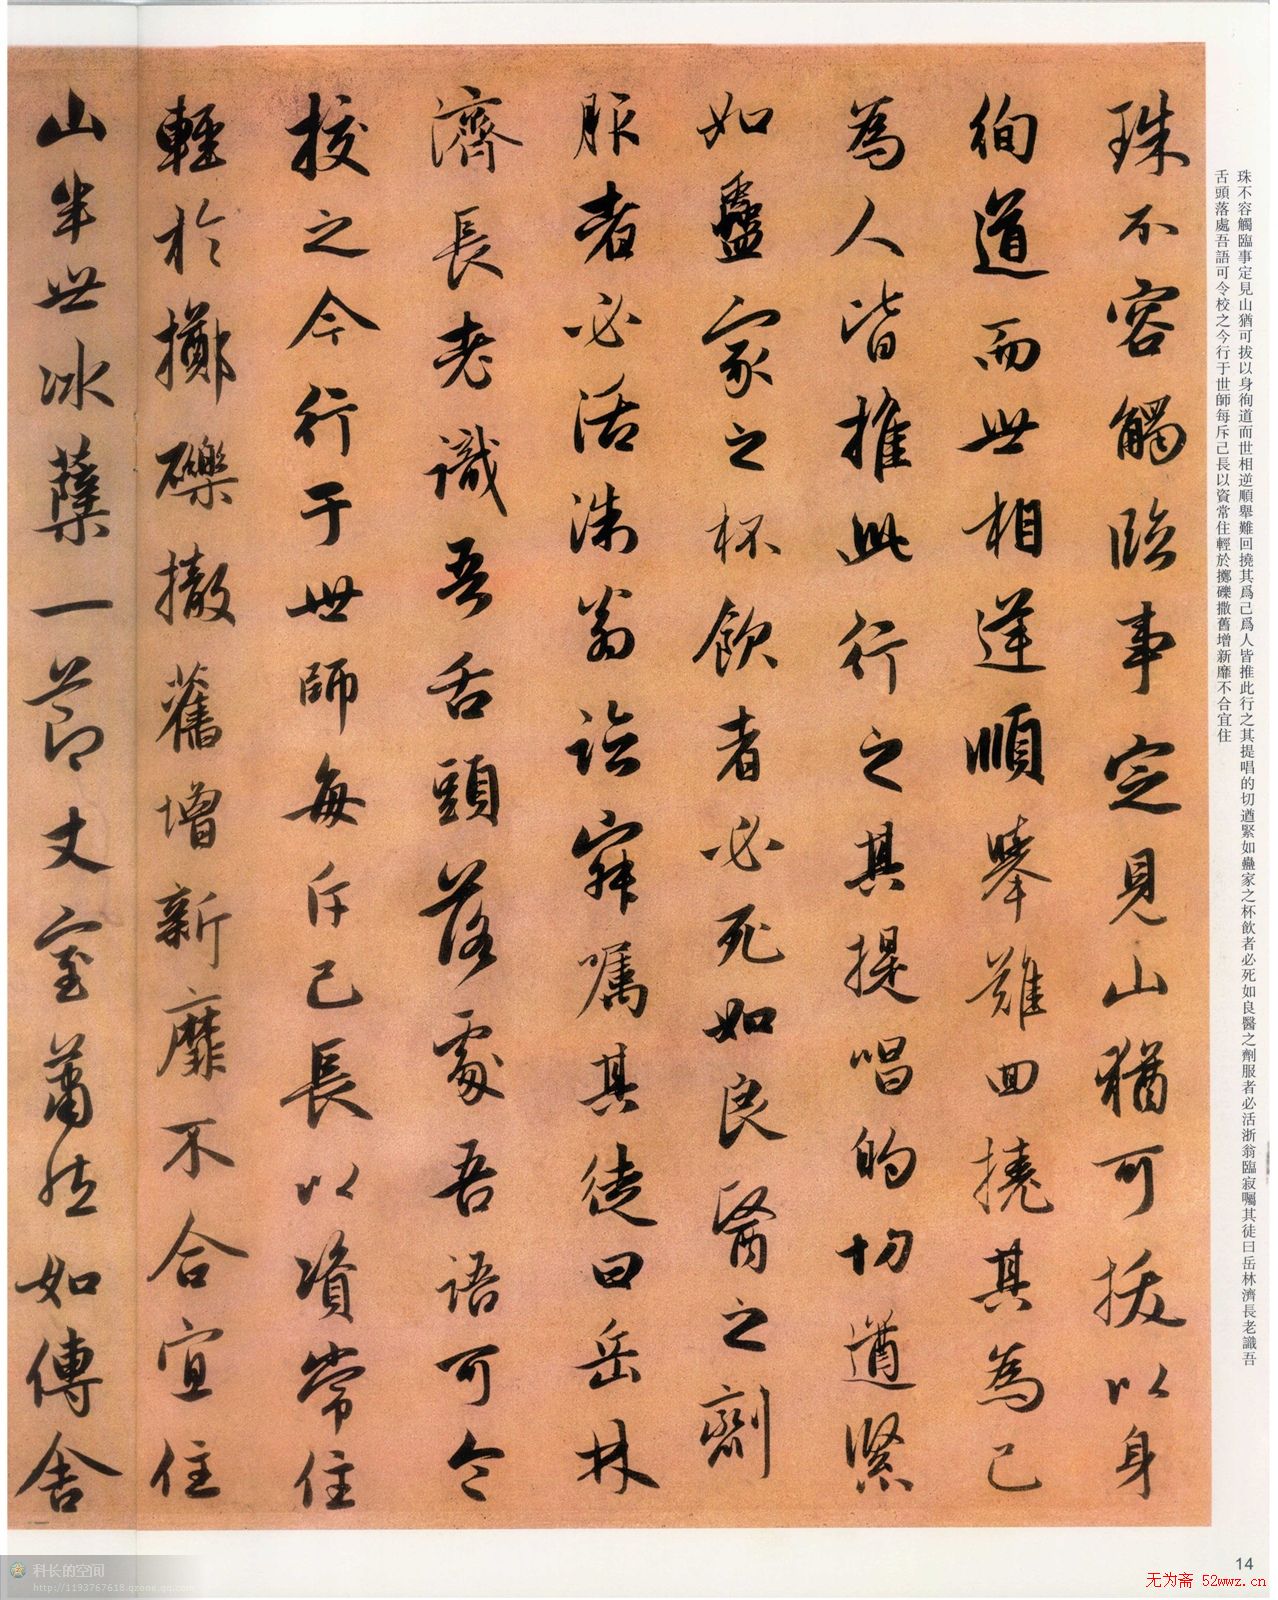 珠不容觸臨事定見山猶可拔以身
徇道而世相逆順舉難回撓其為己
為人皆推此行之其提唱的切遒緊
如蠱家之杯飲者必死如良醫之劑
服者必活浙翁臨寂囑其徒曰岳林
濟長老識吾舌頭落處吾語可令
校之今行于世師每斥己長以資常住
輕於擲礫撤舊增新靡不合宜住
山半世冰蘗一節丈室蕭然如傳舍
珠不容觸臨事定見山猶可拔以身徇道而世相逆順舉難回撓其爲己爲人皆推此行之其提唱的切遒緊如蠱家之杯飲者必死如良醫之劑服者必活浙翁臨寂囑其徒曰岳林濟長老識吾
舌頭落處吾語可令校之今行于世師每斥己長以資常住輕於擲礫撒舊增新靡不合宜住
14
科长的空间
http://1193767618.qzone.qq.com
无为斋 52wwz.cn